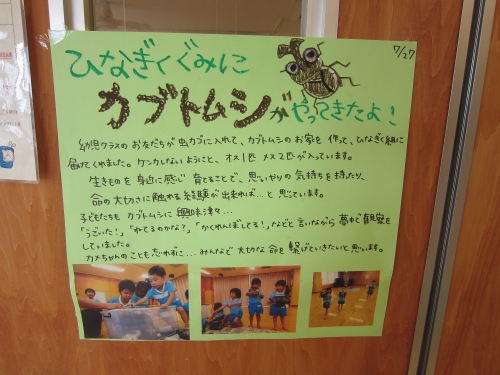 7/27
ひなぎくぐみに
カブトムシがやってきたよ!
幼児クラスのお友だちが虫カゴに入れて、カブトムシのお家を作って、ひなぎく組に
届けてくれました。ケンカしないようにと、オス1匹 メス2匹が入っています。
生きものを身近に感じ 育てることで、思いやりの気持ちを持ったり、
命の大切さに触れる経験が出来れば…と思っています。
子どもたちも カブトムシに興味津々…
「うごいた!」「ねてるのかな?」「かくれんぼしてる!」などと言いながら夢中で観察を
していました。
カメちゃんのことも忘れずに…みんなで大切な命を繋げていきたいと思います。